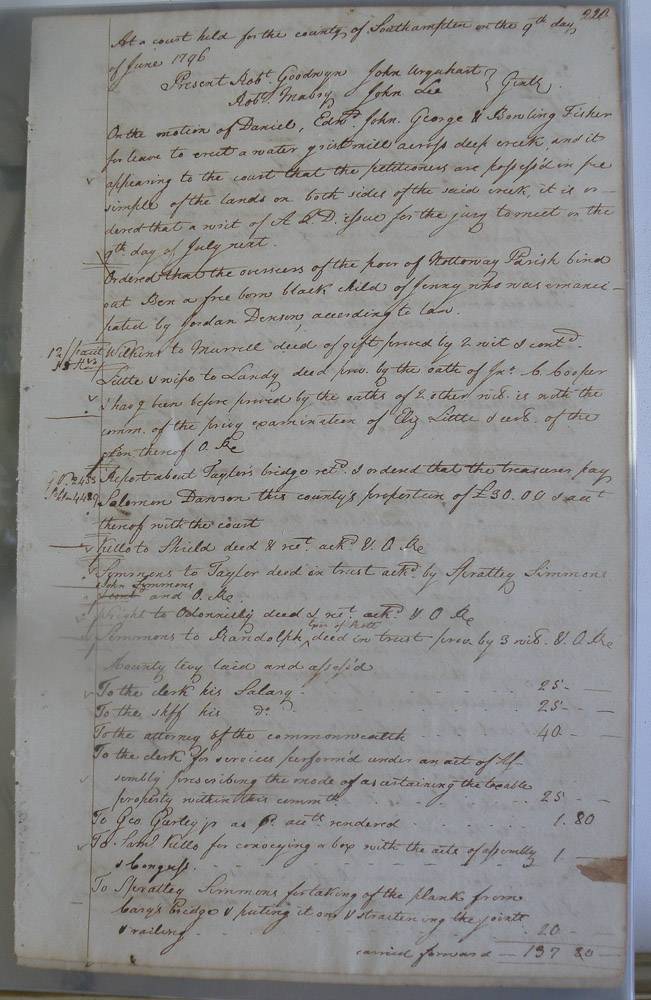 220
At a court held for the county of Southampton on the 9th day
of June 1796
Present Robt. Goodwyn John Urquhart } Gentn.
Robt. Mabry John Lee
On the motion of Daniel, Edwd. John. George & Bowling Fisher
for leave to erect a water grist mill across deep creek and it
appearing to the court that the petitioners are possess'd in fee
simple of the lands on both sides of the said creek, it is or-
dered that a writ of A Q D. issue for the jury to meet on the
9th day of July next.
Ordered that the overseers of the poor of Nottoway Parish bind
out Ben a free born black child of Jenny who was emanci-
pated by Jordan Denson, according to law.
Wilkins to Murrell deed of gift proved by 2 wit & contd.
Little & wife to Landy deed prov. by the oath of Jno. C. Cooper
& havg been before proved by the oaths of 2 other wits. is with the
comm. of the privy examination of Eliz Little
thereof O. Re
Report about Taylor's bridge retd. & ordered that the treasurer pay
Salomon Dawson this county's proportion of £30.00 & act
thereof with the court
Kello to Shield deed & rect. ackd. & O. Re
Symmons to Taylor deed in trust ackd. by Spratley Simmons
John Simmons
and O. Re.
Wright to deed & rect. ackd. & O Re
Simmons to Randolph, deed in trust prov. by 3 wits. & O. Re
County levy laid and assess'd
To the clerk his Salary. 25 - —
To the shff his do. 25 - —
To the attorney of the commonwealth 40 - —
To the clerk for services perform'd under an act of As-
sembly prescribing the mode of ascertaining the taxable
property within this commth. 25 - —
To Geo. Gurley jr as Pr. acct. rendered 1. 80
To Saml Kello for conveying a box with the acts of assembly
& Congress. 1 —
To Spratley Simmons for taking of the plank from
Cary's Bridge & puting it on & straitening the joints
& railing 20 - —
carried forward — 137 80 —